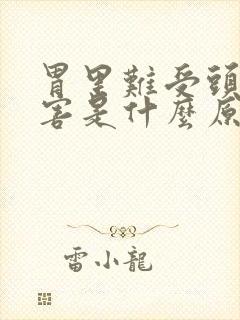 胃里難受頭
害是什麼原
雷小龍